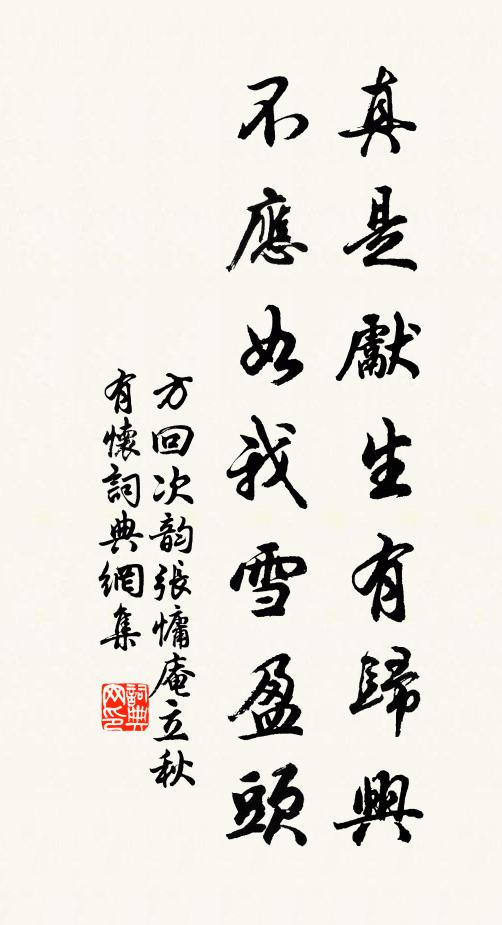 真是獻生有歸興
不應如我雪盈頭
方回次韵張慵庵立秋
有懷詞典網集
詞典
网印